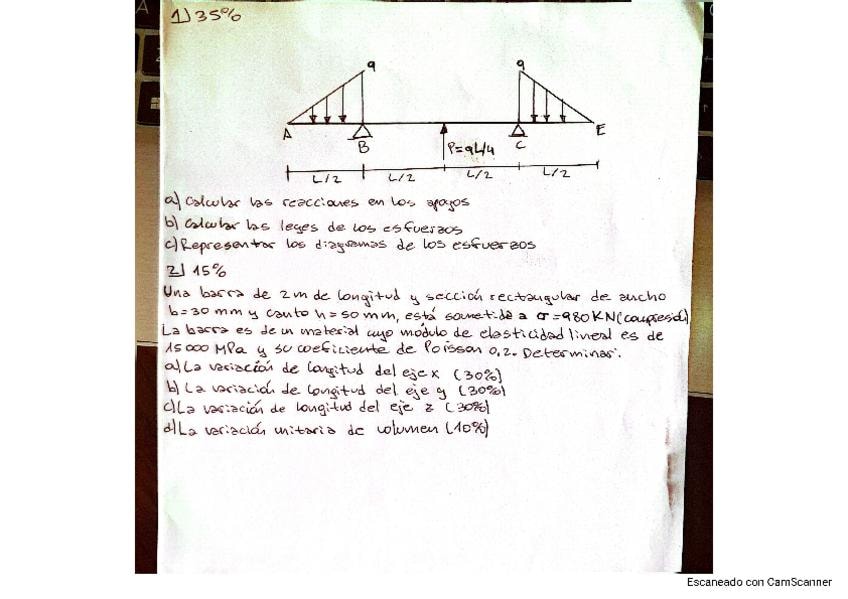 1) 35%
q q
A B P=qL/4 C E
L/2 L/2 L/2 L/2
a) Calcular las reacciones en los apoyos
b) Calcular las leyes de los esfuerzos
c) Representar los diagramas de los esfuerzos
2) 15%
Una barra de 2m de longitud y sección rectangular de ancho
b=30 mm y canto h=50 mm, está sometida a σ=980 KN (compresión).
La barra es de un material cuyo módulo de elasticidad lineal es de
15000 MPa y su coeficiente de Poisson 0,2. Determinar:
a) La variación de longitud del eje x (30%)
b) La variación de longitud del eje y (30%)
c) La variación de longitud del eje z (30%)
d) La variación unitaria de volumen (10%)
Escaneado con CamScanner